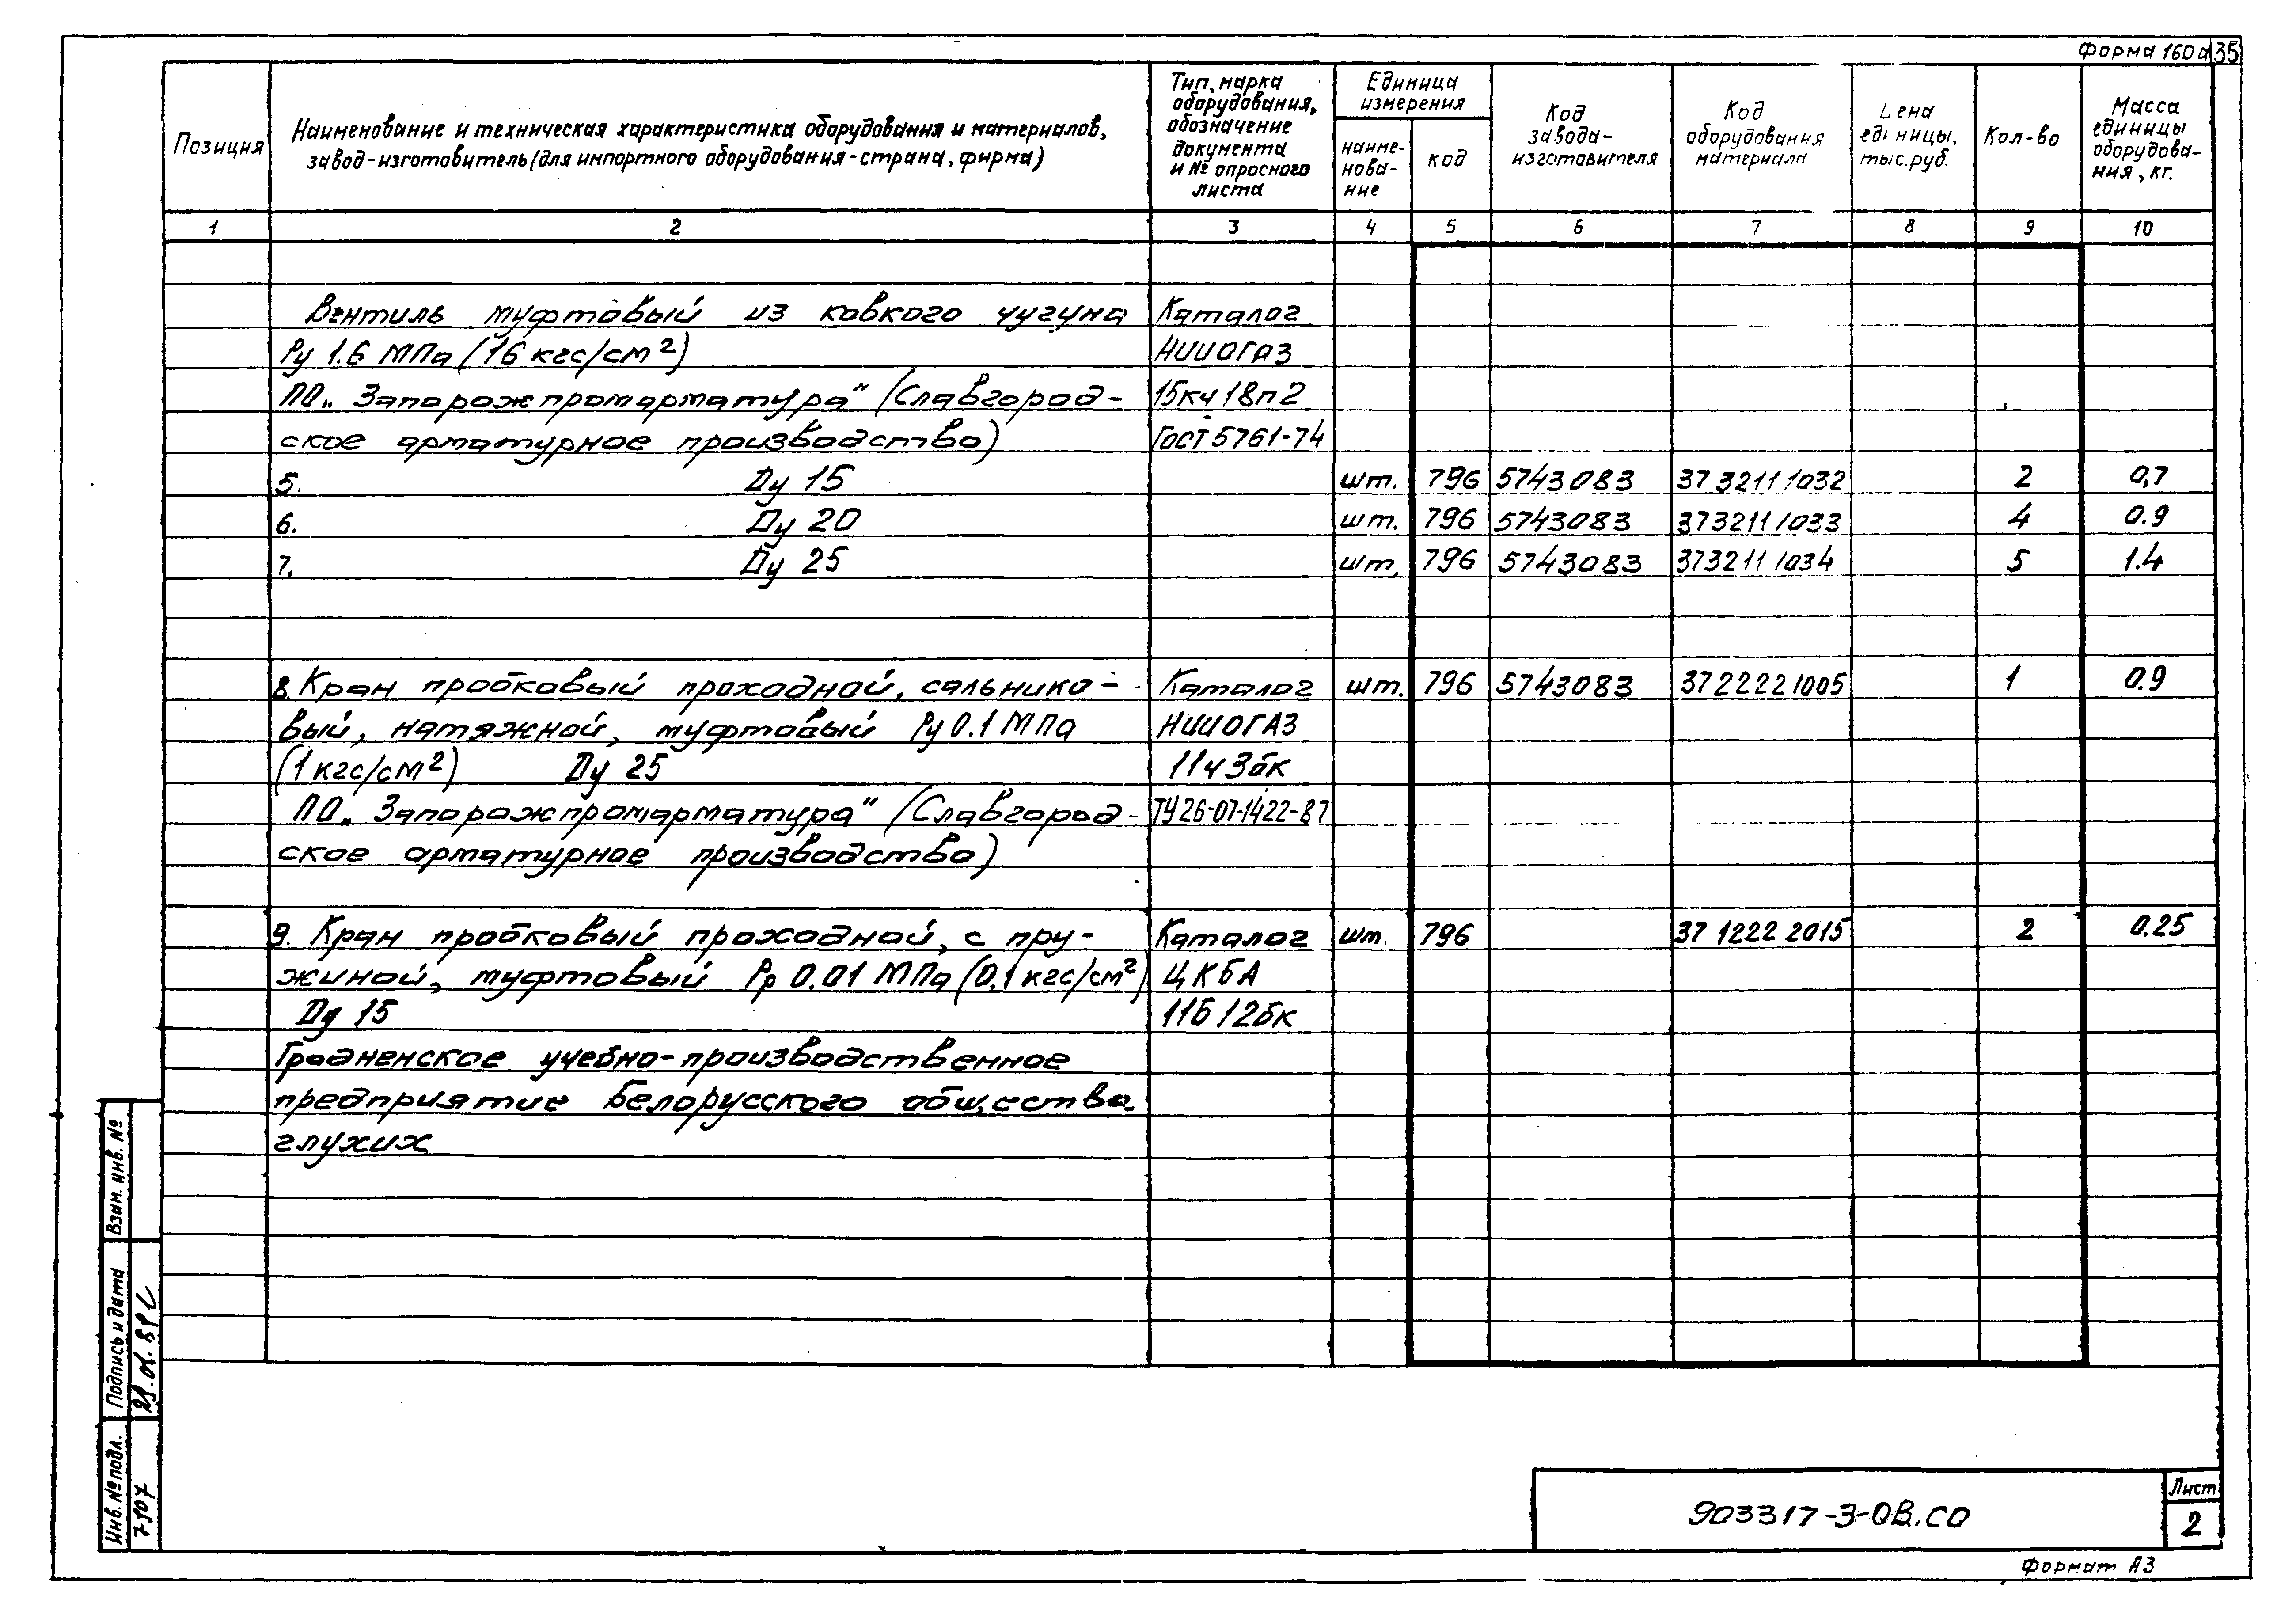 Форма 160а 35
Позиция
Наименование и техническая характеристика оборудования и материалов,
завод-изготовитель (для импортного оборудования-страна, фирма)
Тип, марка
оборудования,
обозначение
документа
и № опросного
листа
Единица
измерения
наиме-
нова-
ние
код
Код
завода-
изготовителя
Код
оборудования
материала
Цена
единицы,
тыс.руб.
Кол-во
Масса
единицы
оборудова-
ния, кг.
1 2 3 4 5 6 7 8 9 10
Вентиль муфтовый из ковкого чугуна Каталог
Ру 1.6 МПа (16 кгс/см²) НИИОГАЗ
ПО „Запорожпромарматура" (Славгород- 15кч18п2
ское арматурное производство) ГОСТ 5761-74
5. Ду 15 шт. 796 5743083 37 3211 1032 2 0,7
6. Ду 20 шт. 796 5743083 373211 1033 4 0.9
7. Ду 25 шт. 796 5743083 373211 1034 5 1.4
8. Кран пробковый проходной, сальнико- Каталог шт. 796 5743083 3722221005 1 0.9
вый, натяжной, муфтовый Ру 0.1 МПа НИИОГАЗ
(1 кгс/см²) Ду 25 11ч3бк
ПО „Запорожпромарматура" (Славгород- ТУ26-07-1422-87
ское арматурное производство)
9. Кран пробковый проходной, с пру- Каталог шт. 796 37 1222 2015 2 0.25
жиной, муфтовый Рр 0.01 МПа (0.1 кгс/см²) ЦКБА
Ду 15 11Б12бк
Гродненское учебно-производственное
предприятие Белорусского общества
глухих
Взам. инв. №
Подпись и дата
29.06.89
Инв. № подл.
7907
903317-3-ОВ.СО
Лист
2
Формат А3